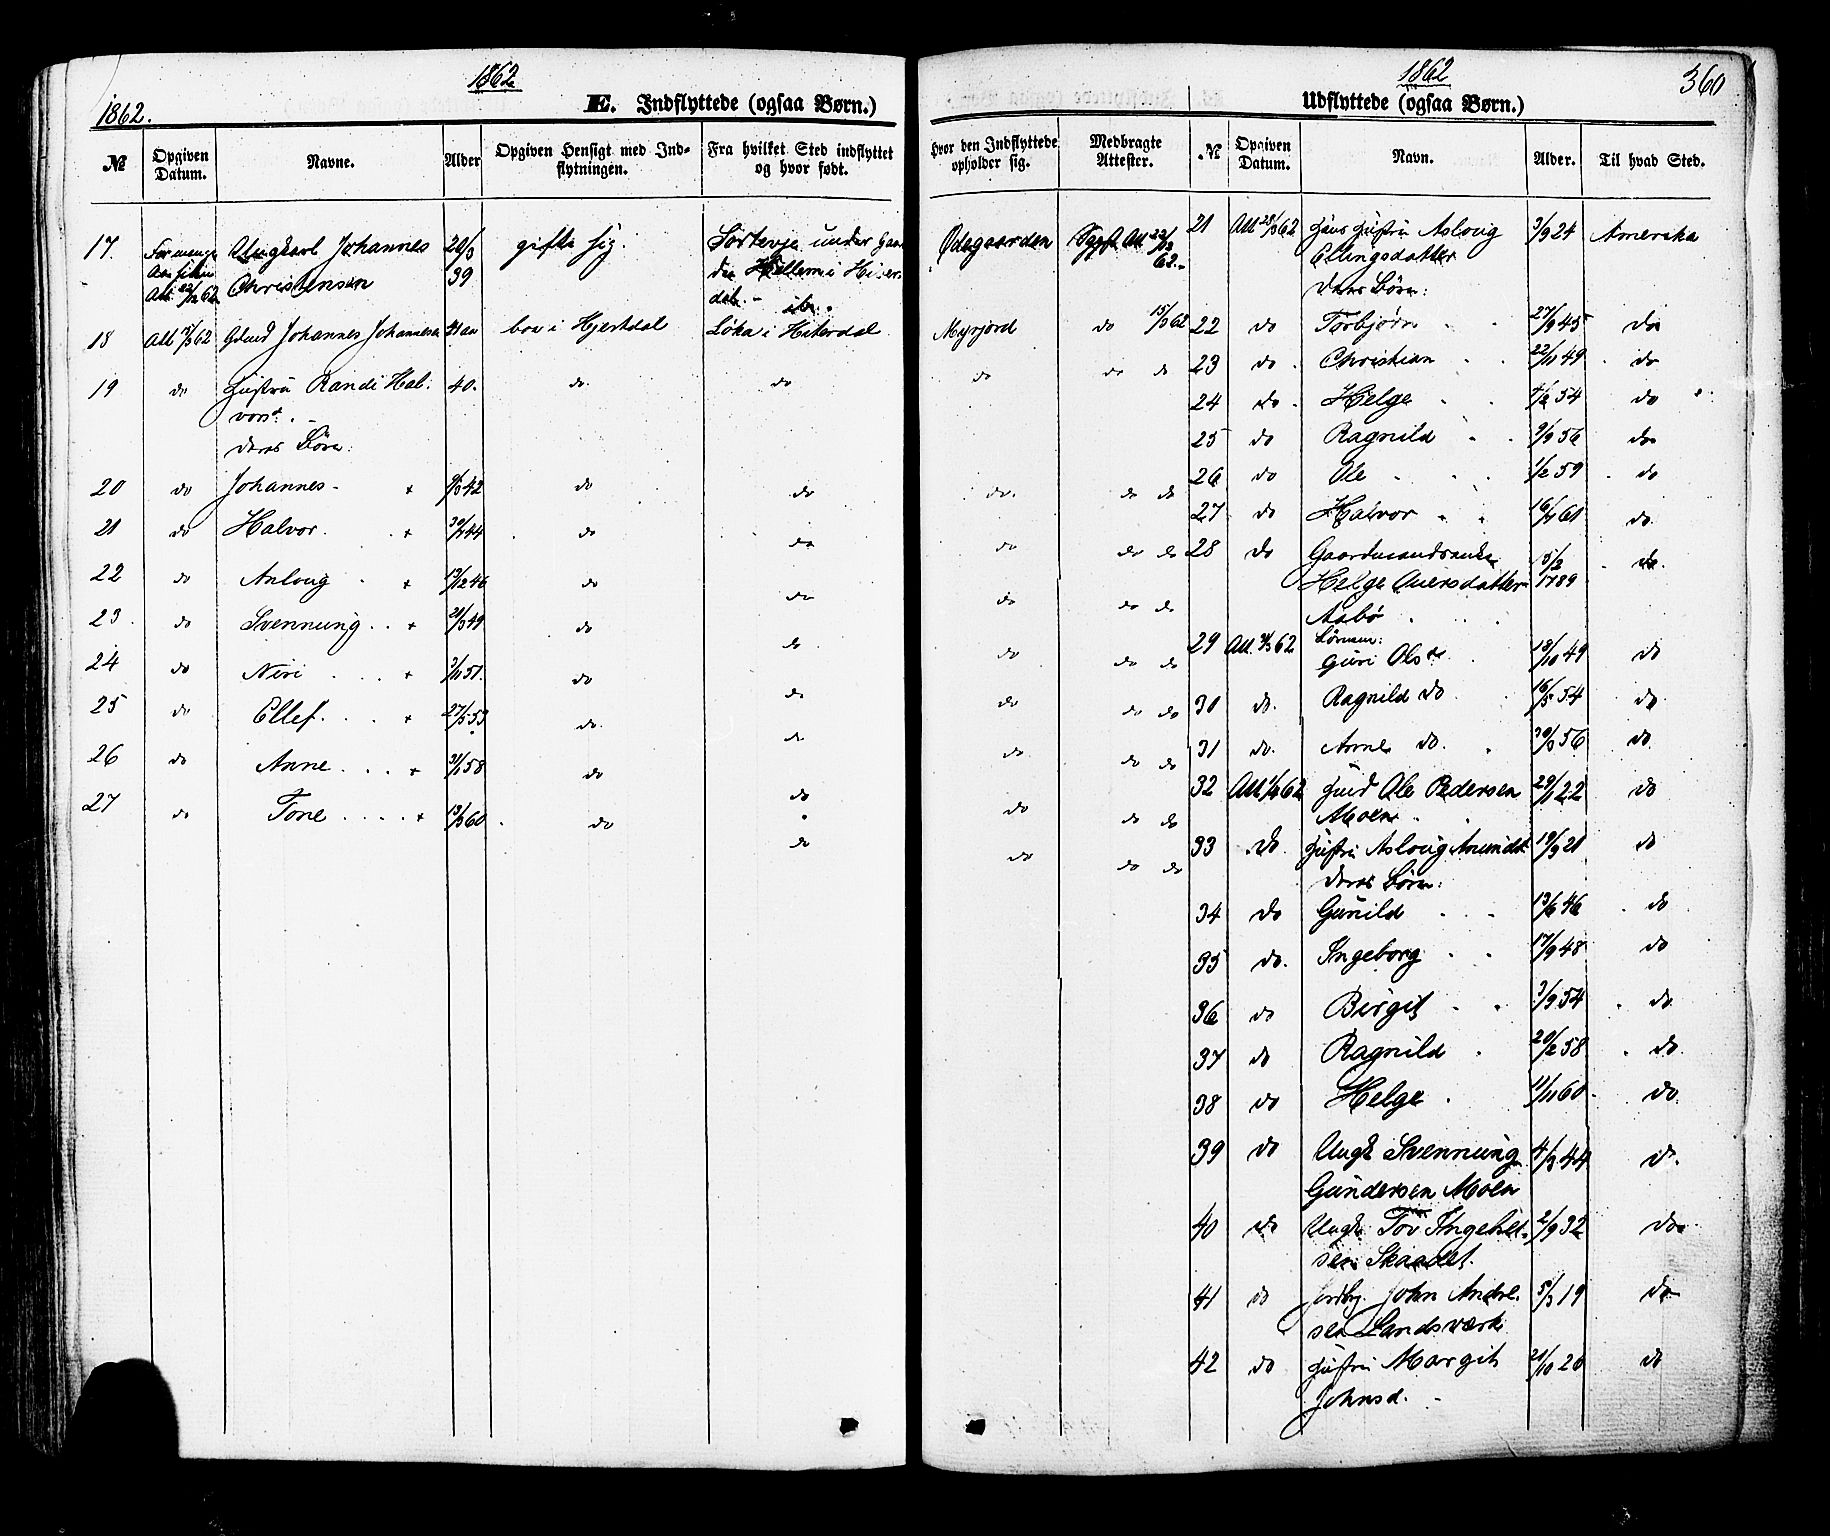 1862
1862.
E. Indflyttede (ogsaa Børn.)
№ Opgiven Datum. Navne. Alder Opgiven Hensigt med Indflytningen. Fra hvilket Sted indflyttet og hvor født.
17. Ungkarl Johannes 20/3 gifte sig. under Gaa
Att. 62 Christensen 39
18 Att 62 Johannes Johannesen boe i Hjertdal Løka i Hiterdal
19 do Hustru Randi Hal- 40. do do
vorsd. -
deres Børn:
20 do Johannes 42 do do
21 do Halvor 44 do do
22 do Asloug 13/12 46 do do
23. do Svennung 21/3 49 do do
24 do Niri 51. do do
25 do Ellef 27/5 53 do do
26 do Anne 58 do do
27 do Tone 13/3 60 do do
1862
360
Udflyttede (ogsaa Børn.)
Hvor den Indflyttede opholder sig. Medbragte Attester. № Opgiven Datum. Navn. Alder. Til hvad Sted.
Ødegaarden Att 62 21 Att 28/3 62 Hans Hustru Asloug 3/9 24 Amerika
Ellingsdatter
deres Børn:
Myrjord do 15/3 62 22 do Torbjørn 27/9 45 do
do do do 23 do Christian 22/11 49 do
24 do Helge 54 do
25 do Ragnild 9/9 56 do
26 do Ole 1/2 59 do
do. do do 27 do Halvor 16/11 61 do
do do do 28 do Gaardmandsenke 15/2 1789 do
Helge Aversdatter
do do do Aabø
do do do 29 Att. 62 Børnene: Guri Olsdr 18/10 49 do
do do do 30 do. Ragnild do 16/5 54 do
do do do 31 do. Anne do. 30/3 56 do
do do do 32 Att 62 Gmd Ole Pedersen 29/11 22 do
Moen
do do do 33 do Hustru Asloug Amundsd. 19/3 21 do
deres Børn:
34 do Gunild 13/6 46 do
35 do. Ingeborg 17/9 48 do
36 do Birgit 3/9 54 do
37 do Ragnild 20/2 58 do
38 do Helge 11/11 60 do
39 do Ungk Svennung 4/3 44 do
Gundersen Moen
40 do Ungk. Tov Ingebret- 2/9 32 do
sen Skaadet.
41 do John Andre- 5/3 19 do
sen Landsværk
42 do Hustru Margit 21/10 20 do
Johnsd.